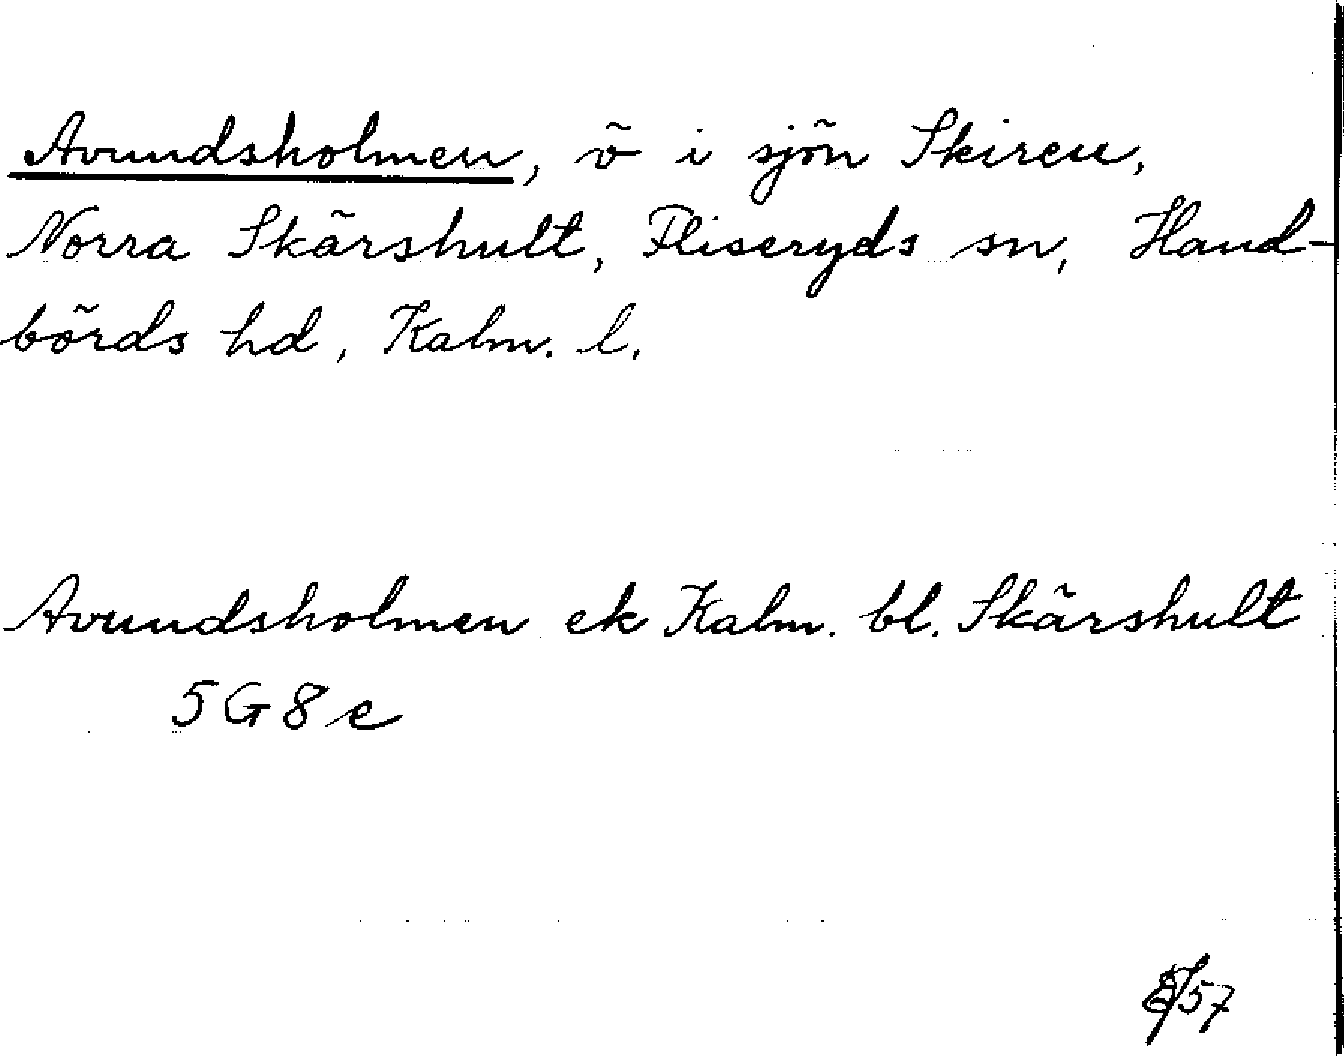 Avundsholmen, ö i sjön Skiren,
Norra Skärshult, Fliseryds sn, Hand-
börds hd, Kalm. l.
Avundsholmen ek Kalm. bl. Skärshult
5G8e
57